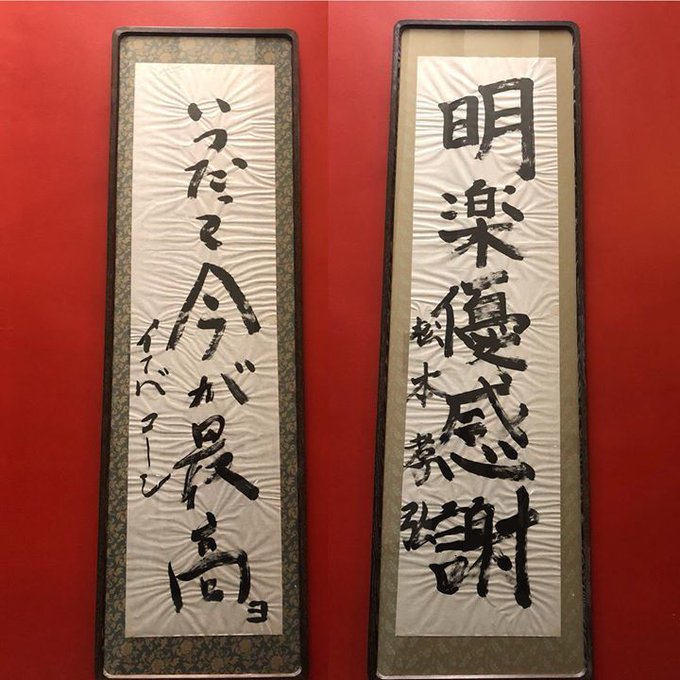 いつだって今が最高ヨ
イナバコーシ
明楽優感謝
松本孝弘